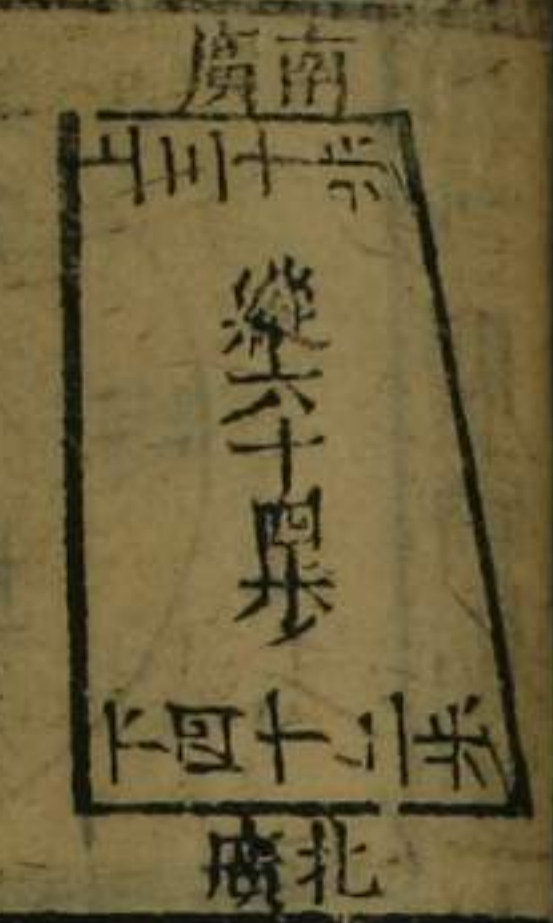 南廣
上三十步
縱六十四步
下四十二步
北廣